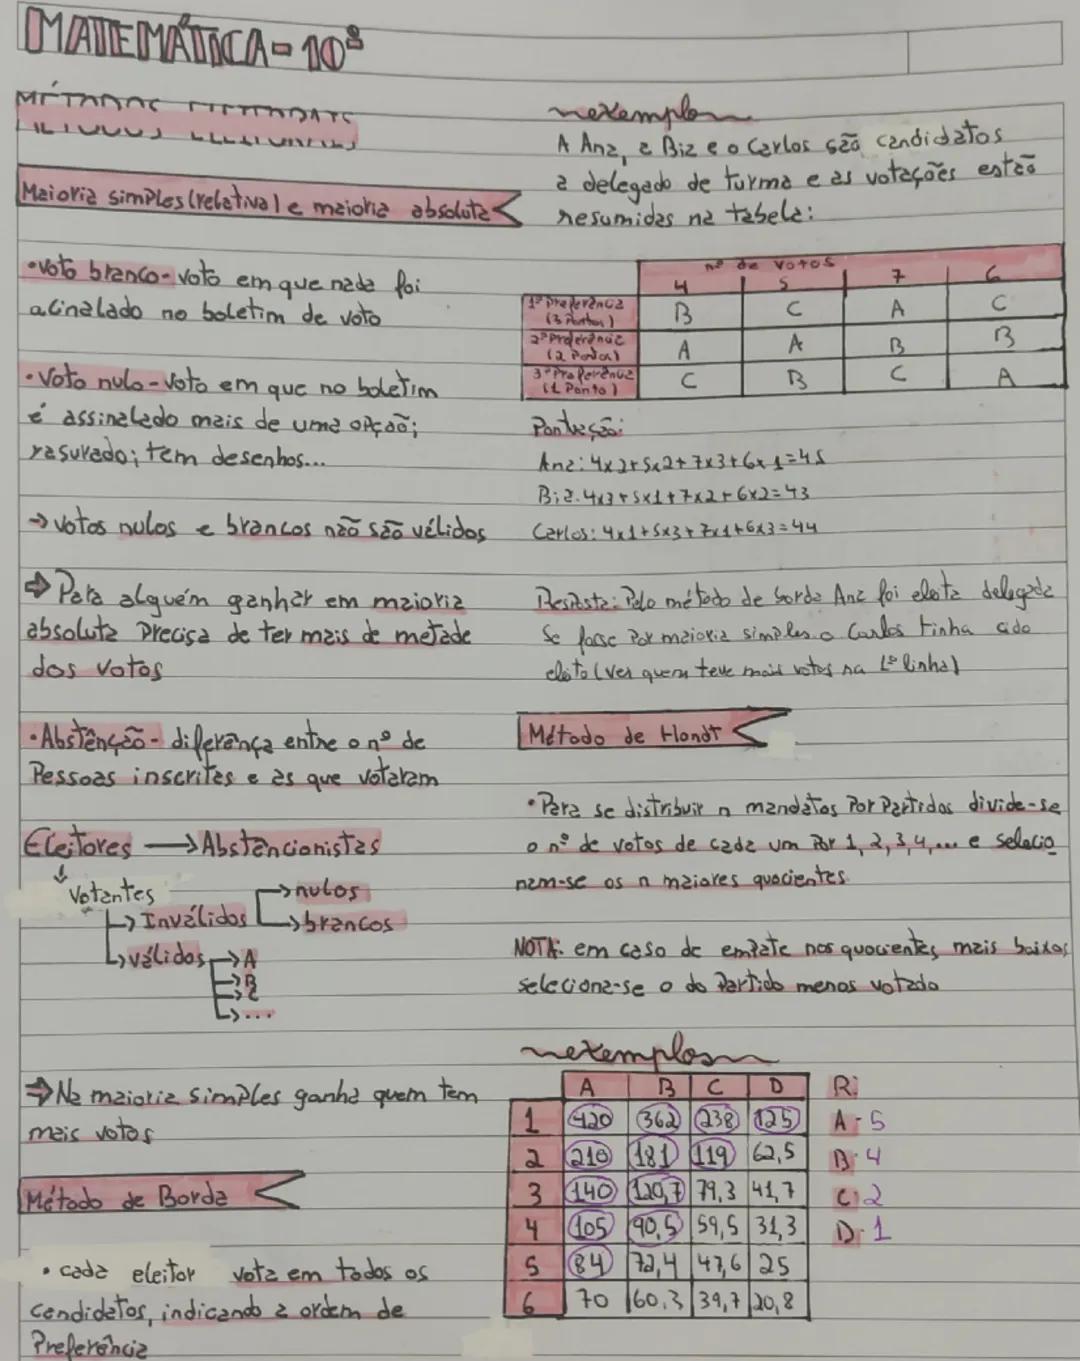 MATEMÁTICA - 10º
MÉTODOS ELEITORAIS
Maioria simples (relativa) e maioria absoluta
•Voto branco - voto em que nada foi
acinalado no boletim de voto
•Voto nulo - voto em que no boletim
é assinalado mais de uma opçaõ;
rasurado; tem desenhos...
→ votos nulos e brancos naõ saõ válidos
⇒ Para alguém ganhar em maioria
absoluta precisa de ter mais de metade
dos votos
•Abstênçaõ - diferença entre o nº de
Pessoas inscritas e as que votaram
Eleitores → Abstencionistas
↓
Votantes
→ nulos
↳ Inválidos
→ brancos
↳ válidos → A
→ B
→ C
→ ...
⇒ Na maioria simples ganha quem tem
mais votos
Método de Borda
• cada eleitor vota em todos os
candidatos, indicando a ordem de
Preferência
exemplo
A Ana, a Biz e o Carlos saõ candidatos
a delegado de turma e as votações estaõ
resumidas na tabela:
nº de votos
4 5 7 6
1ª Preferência B C A C
(3 Pontos)
2ª Preferência A A B B
(2 Pontos)
3ª Preferência C B C A
(1 Ponto)
Pontuaçaõ:
Ana: 4x2+5x2+7x3+6x1=45
Biz: 4x3+5x1+7x2+6x2=43
Carlos: 4x1+5x3+7x1+6x3=44
Resposta: Pelo método de borda Ana foi eleita delegada
Se fosse por maioria simples o Carlos tinha cido
eleito (ver quem teve mais votos na 1ª linha)
Método de Hondt
•Para se distribuir n mandatos por partidos divide-se
o nº de votos de cada um por 1, 2, 3, 4, ... e selecio
nam-se os n maiores quocientes
NOTA: em caso de empate nos quocientes mais baixos
seleciona-se o do Partido menos votado
exemplos
A B C D R:
1 420 362 238 125 A - 5
2 210 181 119 62,5 B - 4
3 140 120,7 79,3 41,7 C - 2
4 105 90,5 59,5 31,3 D - 1
5 84 72,4 47,6 25
6 70 60,3 39,7 20,8